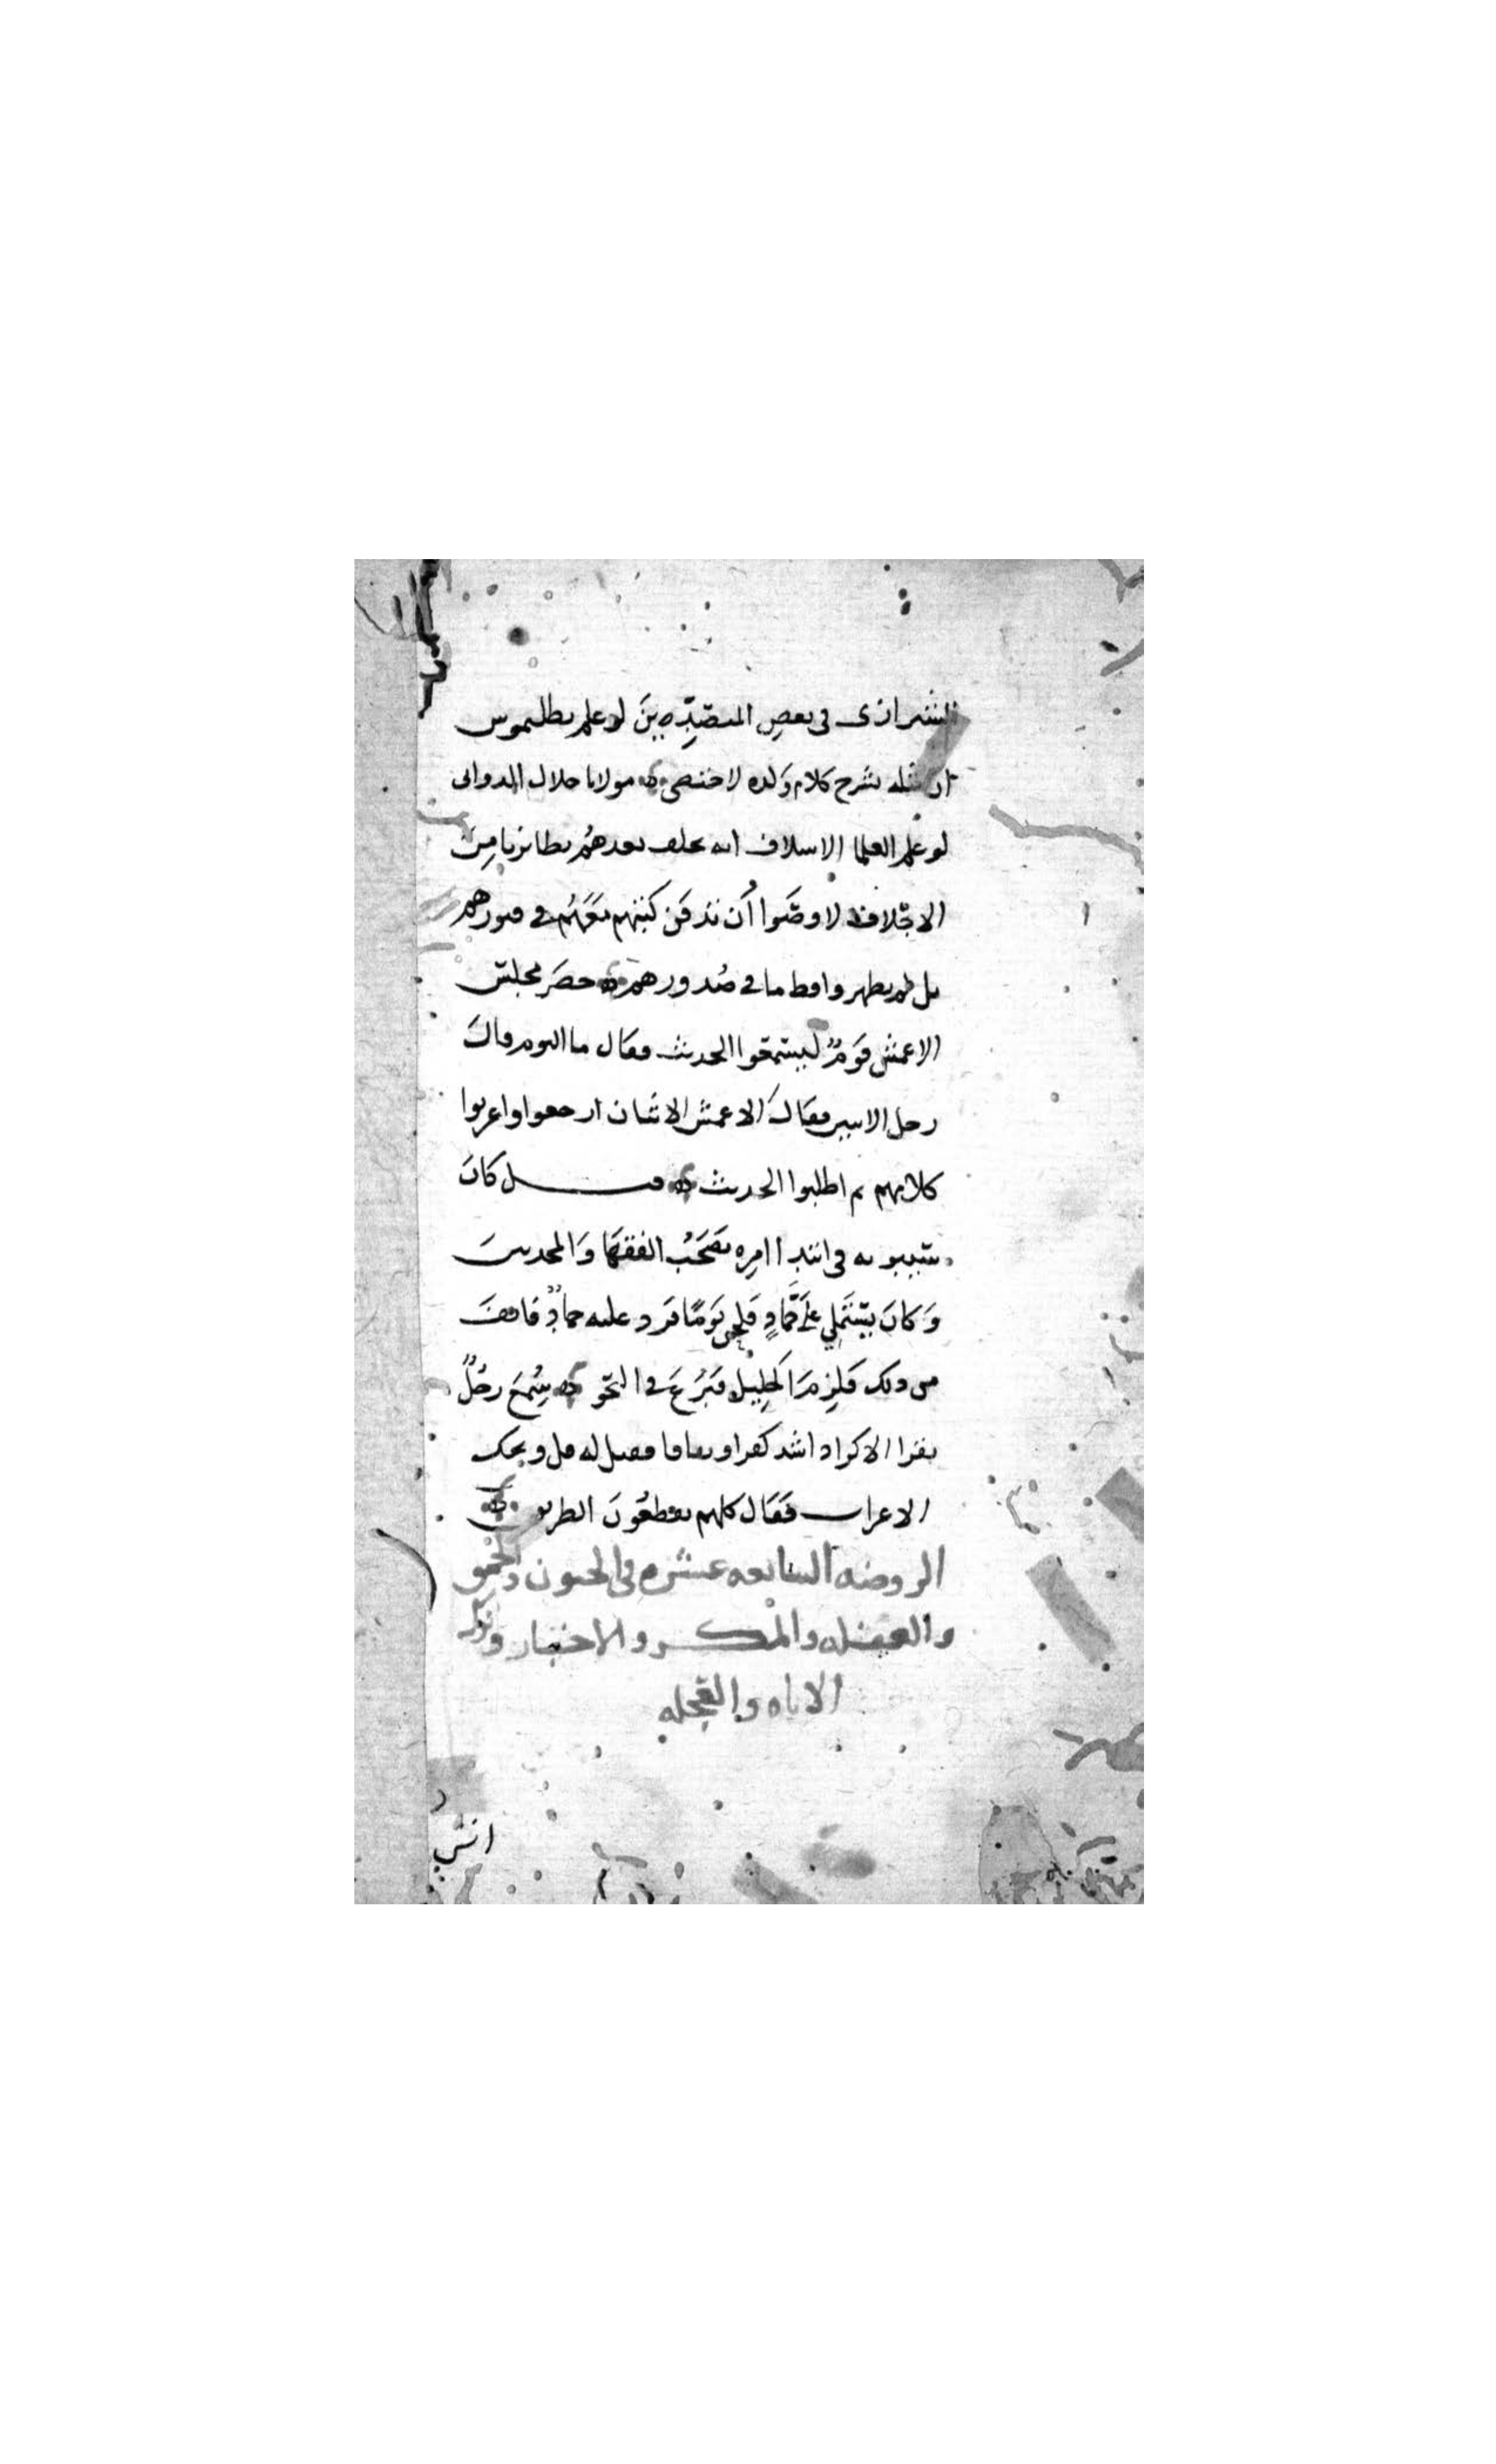 الشيرازى فى بعض المتصدرين لو علم بطليموس
ان مثله يشرح كلامه ولده لاختصى مولانا جلال الدوانى
لو علم العلما الاسلاف انه يخلف بعدهم بطائن يا من
الاجلاف لاوصوا أن ندفن كتبهم معهم فى قبورهم
بل لم يظهروا قط ما فى صدورهم حضر مجلس
الاعمش قوم ليسمعوا الحديث فقال ما اليوم قال
رجل الاثنين فقال الاعمش الاثنان ارجعوا واعربوا
كلامهم ثم اطلبوا الحديث قيل كان
سيبويه فى ابتدا امره يصحب الفقها والمحدثين
وكان يستملي على حماد فلحن يوما فرد عليه حماد فانف
من ذلك فلزم الخليل فبرع فى النحو سمع رجل
يقرا الاكراد اشد كفرا ونفاقا فقيل له قل ويحك
الاعراب فقال كلهم يقطعون الطريق
الروضه السابعه عشره فى الجنون والحمق
والغفله والمكر والاحتيار وترك
الاناه والعجله
انس